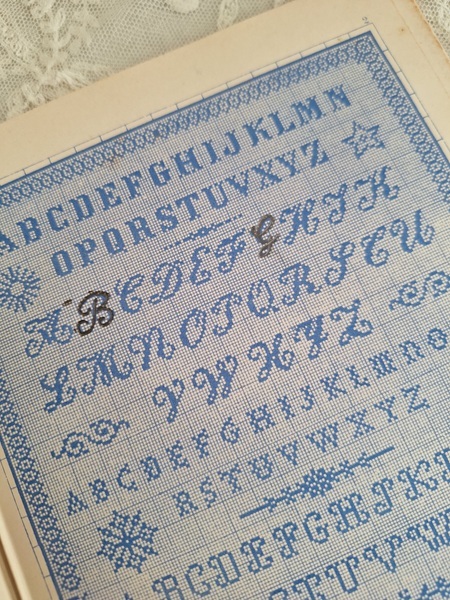 2
ABCDEFGHIJKLMN
OPQRSTUVWXYZ
ABCDEFGHIJK
LMNOPQRSTU
VWXYZ
ABCDEFGHIJKLMNO
RSTUVWXYZ
ABCDEFGHIJKL
TUVW